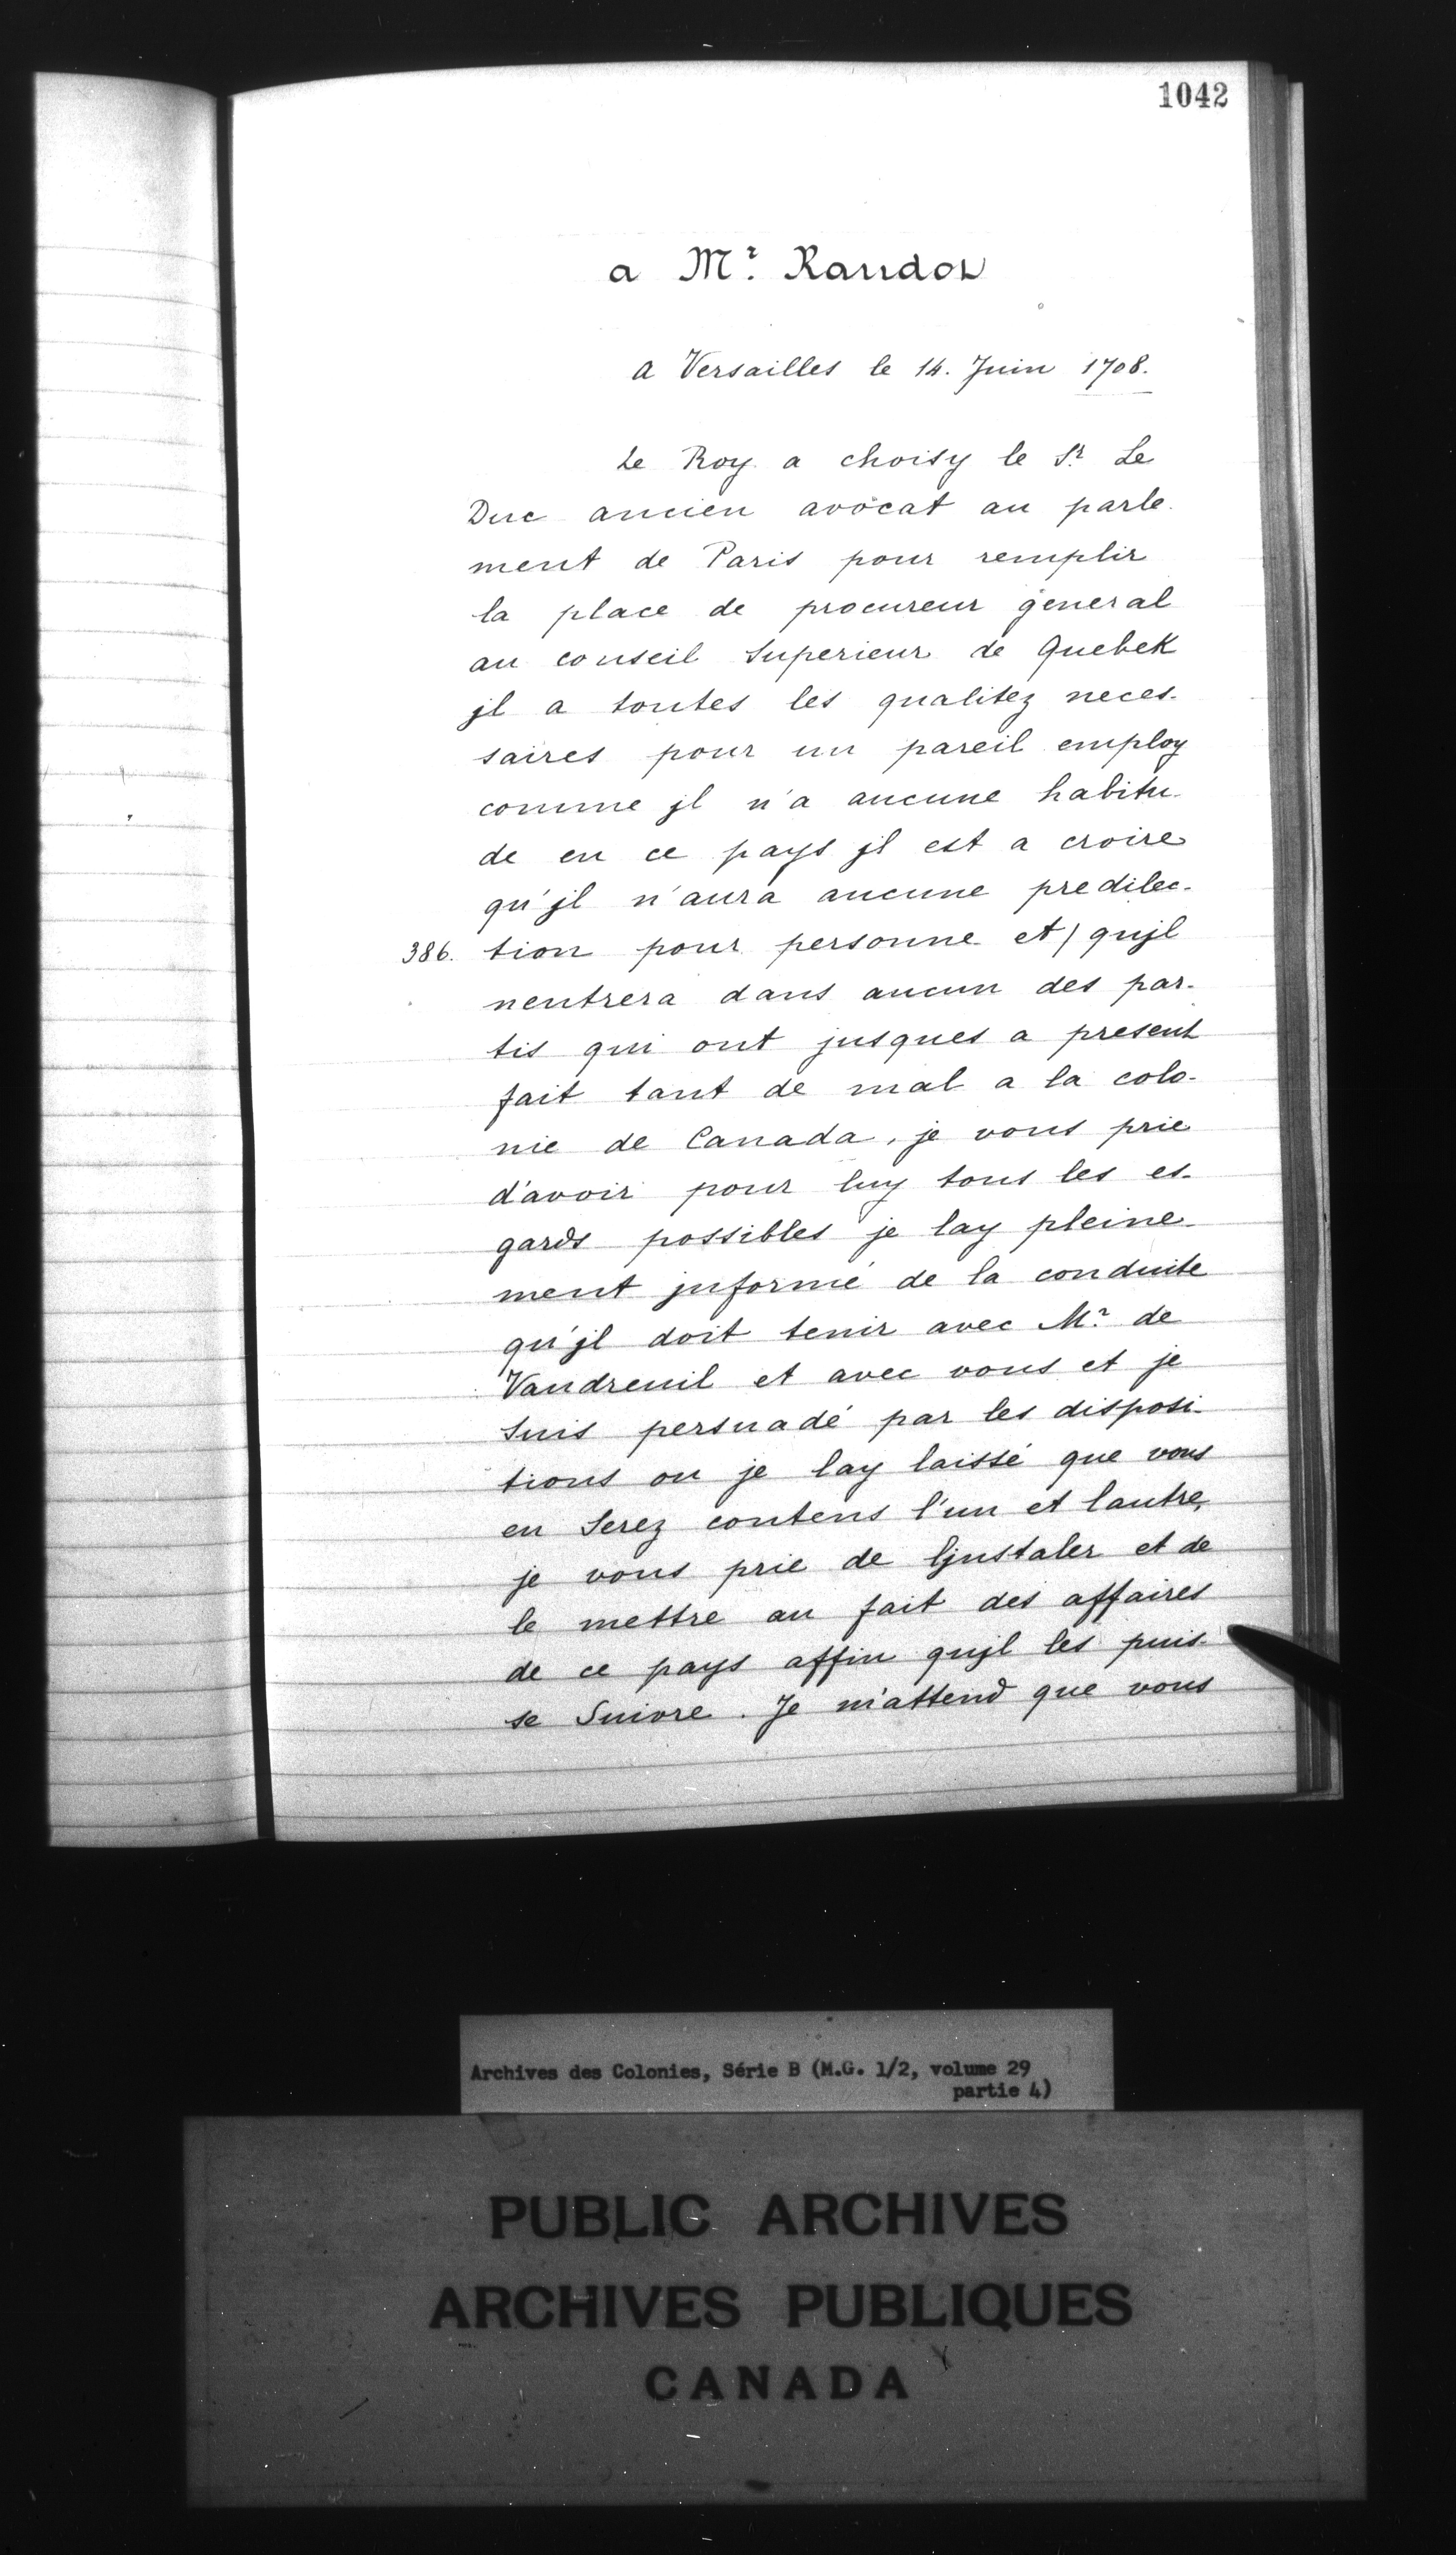 1042
a Mr. Raudot
a Versailles le 14. Juin 1708.
Le Roy a choisy le Sr. Le
Duc ancien avocat au parle-
ment de Paris pour remplir
la place de procureur general
au conseil Superieur de Quebek
jl a toutes les qualitez neces-
saires pour un pareil employ
comme jl n'a aucune habitu-
de en ce pays jl est a croire
qu'jl n'aura aucune predilec-
386. tion pour personne et/ qujl
nentrera dans aucun des par-
tis qui ont jusques a present
fait tant de mal a la colo-
nie de Canada, je vous prie
d'avoir pour luy tous les es-
gards possibles je lay pleine-
ment jnformé de la conduite
qu'jl doit tenir avec Mr. de
Vaudreuil et avec vous et je
Suis persuadé par les disposi-
tions ou je lay laissé que vous
en Serez contens l'un et lautre,
je vous prie de ljnstaler et de
le mettre au fait des affaires
de ce pays affin qujl les puis-
se Suivre. Je m'attend que vous
Archives des Colonies, Série B (M.G. 1/2, volume 29
partie 4)
PUBLIC ARCHIVES
ARCHIVES PUBLIQUES
CANADA